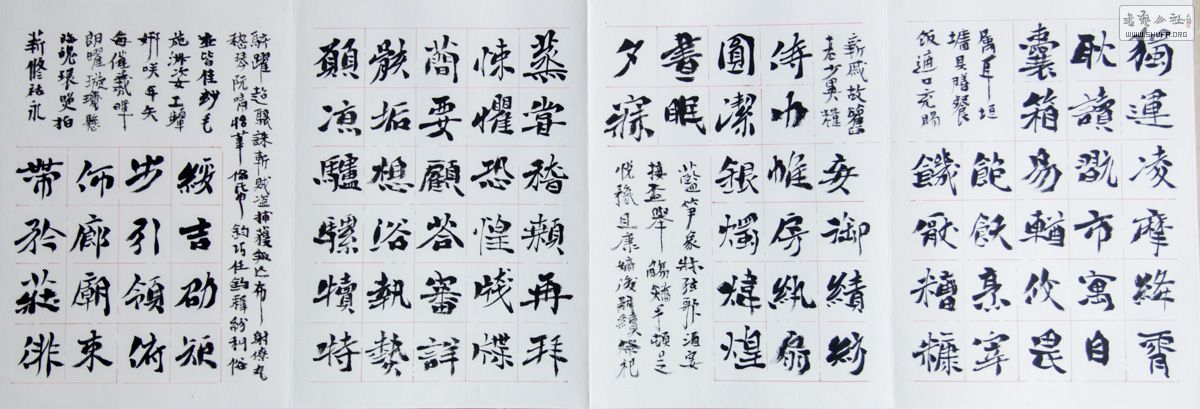 書藝公社
WWW.SHUFA.ORG
獨運凌摩絳霄
耽讀翫市寓目
囊箱易輶攸畏
属耳垣
墻具膳餐
飯適口充腸
飽飫烹宰
饑厭糟糠
親戚故舊
老少異糧
妾御績紡
侍巾帷房紈扇
圓潔銀燭煒煌
晝眠
夕寐
藍笋象牀弦歌酒宴
接盃舉觴矯手頓足
悅豫且康嫡後嗣續祭祀
蒸嘗稽顙再拜
悚懼恐惶牋牒
簡要顧答審詳
骸垢想浴執熱
願凉驢騾犢特
駭躍超驤誅斬賊盜捕獲叛亡布射僚丸
嵇琴阮嘯恬筆倫紙鈞巧任釣釋紛利俗
並皆佳妙毛
施淑姿工顰
妍咲年矢
每催羲暉
朗曜璇璣懸
晦魄環照指
薪修祜永
綏吉劭矩
步引領俯
仰廊廟束
帶矜莊徘